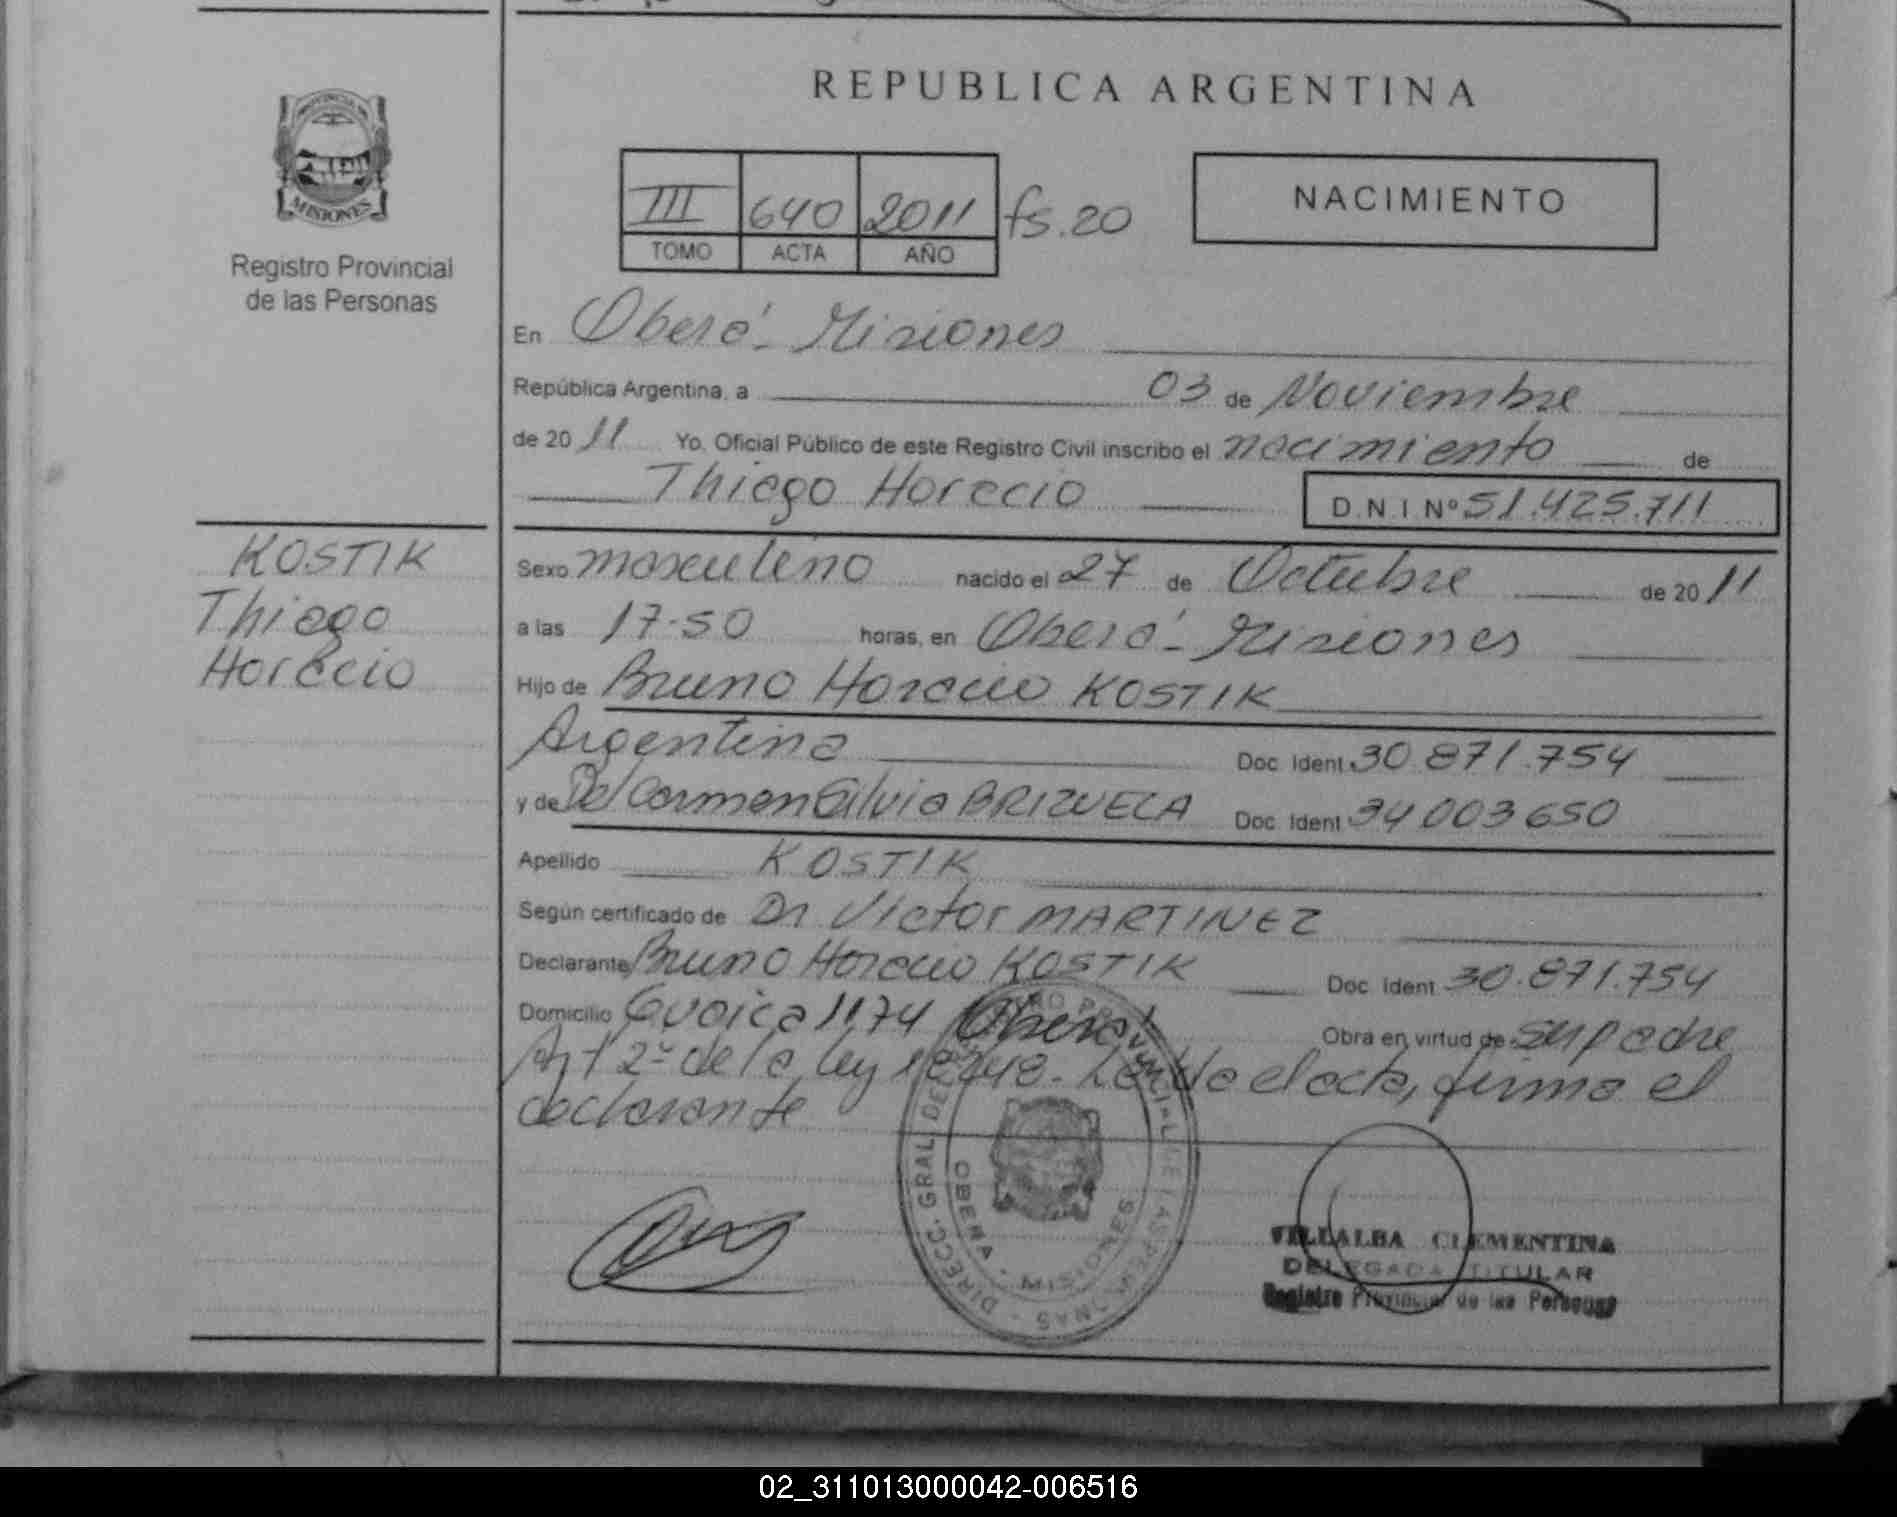 REPUBLICA ARGENTINA
PROVINCIA DE
MISIONES
Registro Provincial
de las Personas
III 640 2011 fs.20
TOMO ACTA AÑO
NACIMIENTO
En Oberá - Misiones
República Argentina, a 03 de Noviembre
de 2011 Yo, Oficial Público de este Registro Civil inscribo el nacimiento de
Thiago Horacio D.N.I Nº 51.425.711
KOSTIK
Thiago
Horacio
Sexo masculino nacido el 27 de Octubre de 2011
a las 17.50 horas, en Oberá - Misiones
Hijo de Bruno Horacio KOSTIK
Argentina Doc. Ident. 30.871.754
y de Del Carmen Silvia BRIZUELA Doc. Ident. 34 003 650
Apellido KOSTIK
Según certificado de Dr Victor MARTINEZ
Declarante Bruno Horacio KOSTIK Doc. Ident. 30.871.754
Domicilio 1174 Oberá Obra en virtud de su padre
Art 2º de la ley 18248. Leída el acta, firma el
declarante
DIRECC. GRAL. DEL REGISTRO PROVINCIAL DE LAS PERSONAS
OBERA - MISIONES
VILLALBA CLEMENTINA
DELEGADA TITULAR
Registro Provincial de las Personas
02_311013000042-006516